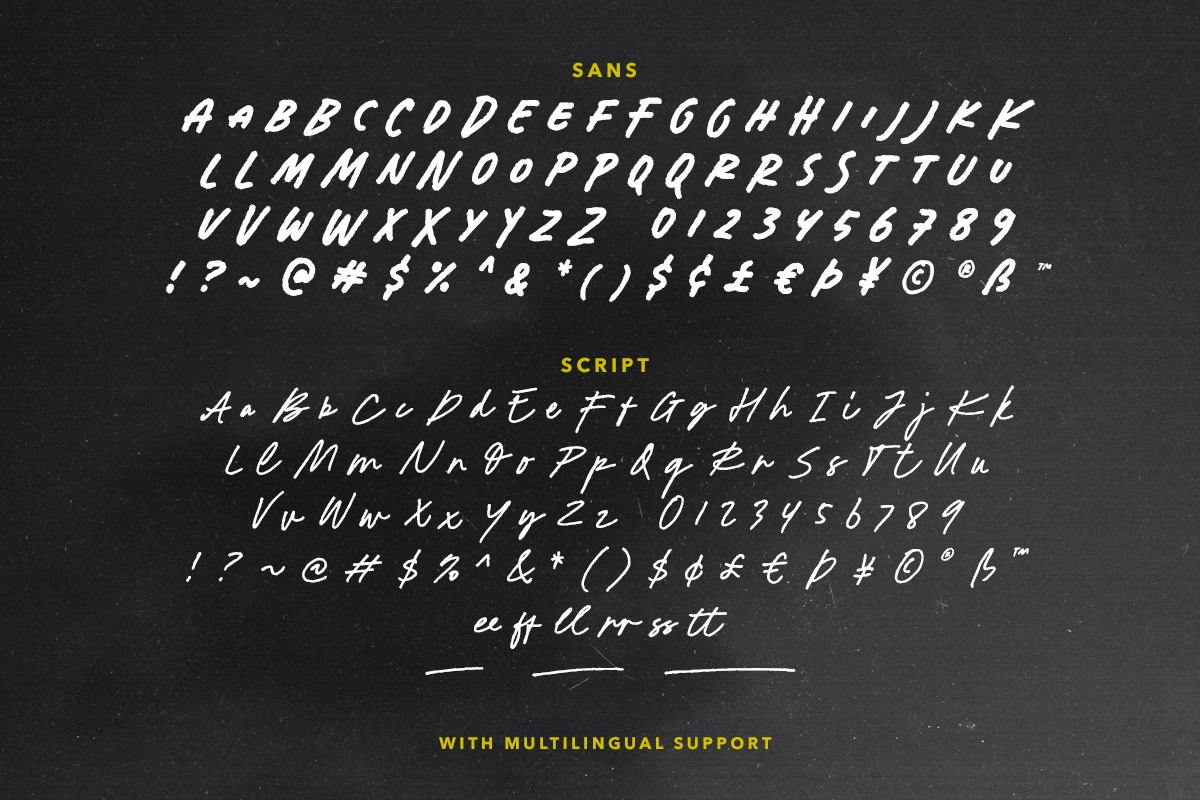 SANS
A A B B C C C D D E E F F G G H H I I J J K K
L L M M N N O O P P Q Q R R S S T T U U
V V W W X X Y Y Z Z 0 1 2 3 4 5 6 7 8 9
! ? ~ @ # $ % ^ & * ( ) $ ¢ £ € Þ ¥ © ® ß ™
SCRIPT
A a B b C c D d E e F f G g H h I i J j K k
L l M m N n O o P p Q q R r S s T t U u
V v W w X x Y y Z z 0 1 2 3 4 5 6 7 8 9
! ? ~ @ # $ % ^ & * ( ) $ ¢ £ € Þ ¥ © ® ß ™
ee ff ll rr ss tt
WITH MULTILINGUAL SUPPORT